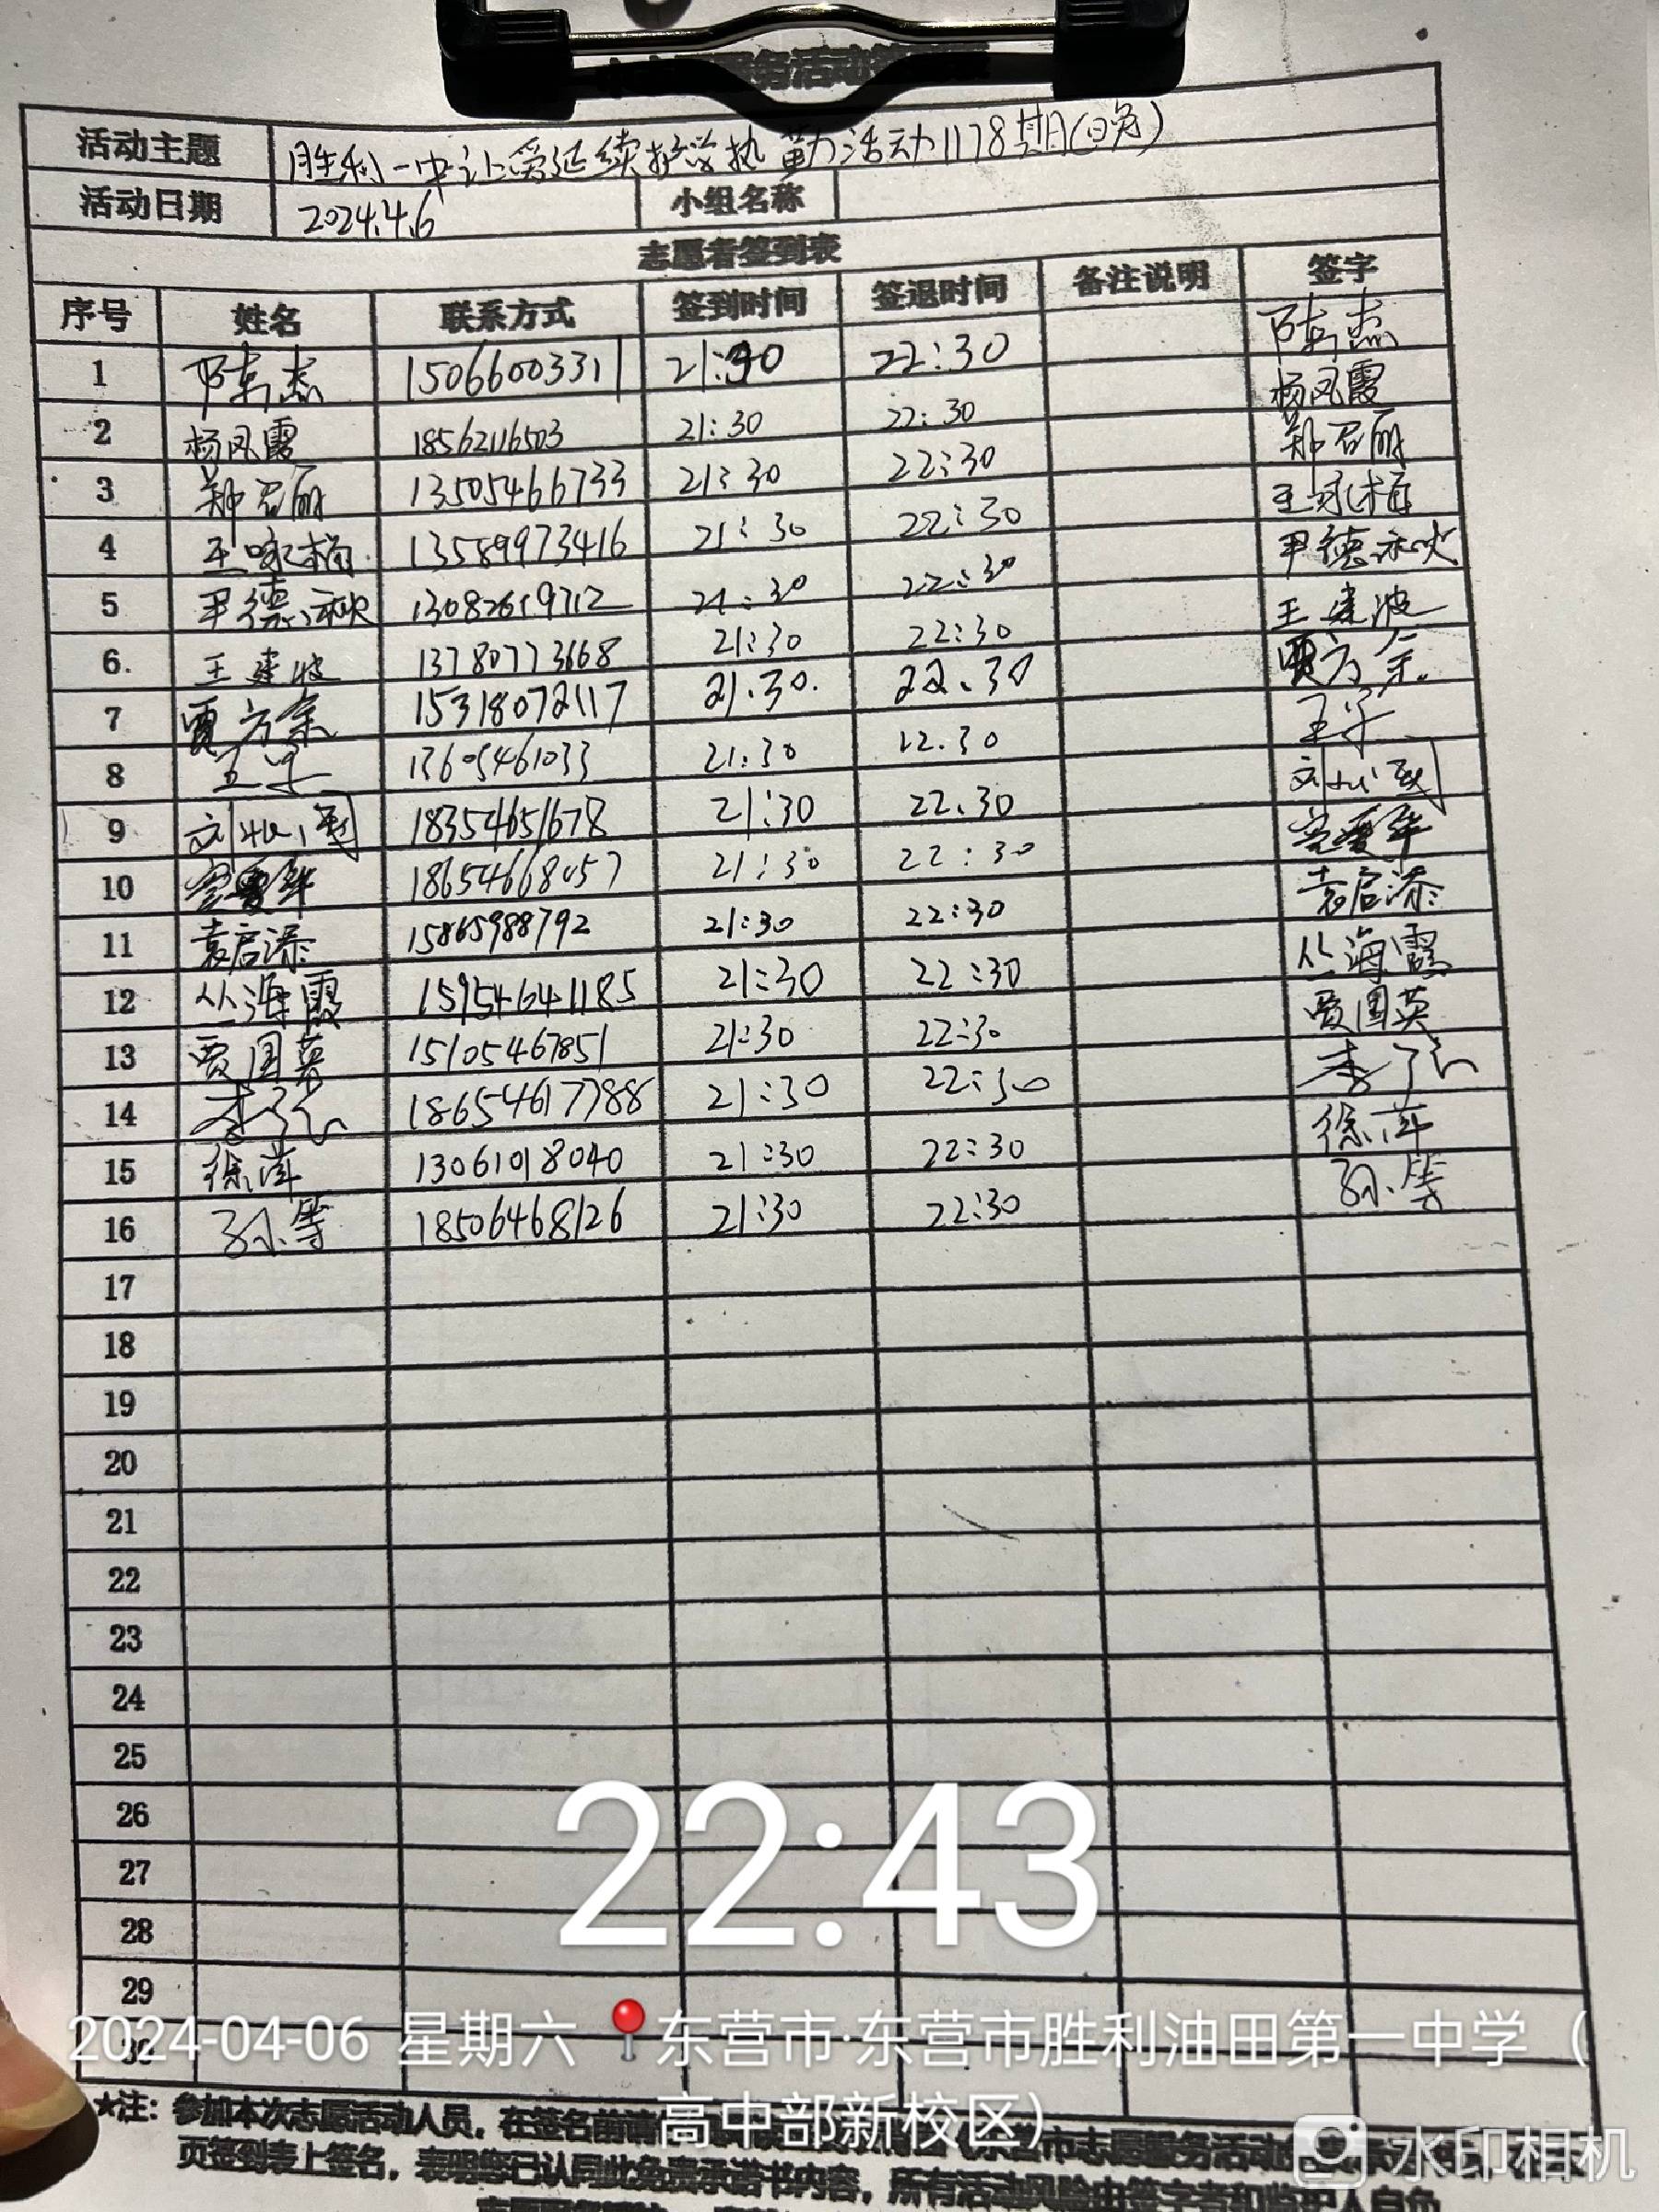 务活动
活动主题 胜利一中让爱延续护学执勤活动1178期(晚)
活动日期 2024.4.6 小组名称
志愿者签到表
序号 姓名 联系方式 签到时间 签退时间 备注说明 签字
1 陈杰 15066003311 21:30 22:30 陈杰
2 杨凤霞 18562116503 21:30 22:30 杨凤霞
3 郑召丽 13505466733 21:30 22:30 郑召丽
4 13589973416 21:30 22:30
5 尹德 13082619712 21:30 22:30 尹德
6. 王建波 13780773668 21:30 22:30 王建波
7 贾方余 15318072117 21.30. 22.30 贾方余
8 13605461033 21:30 22.30
9 刘 18354651678 21:30 22.30 刘
10 18654668057 21:30 22:30
11 袁启添 15865988792 21:30 22:30 袁启添
12 丛海霞 15954641185 21:30 22:30 丛海霞
13 贾国英 15105467851 21:30 22:30 贾国英
14 李 18654617788 21:30 22:30 李
15 徐萍 13061018040 21:30 22:30 徐萍
16 孙等 18506468126 21:30 22:30 孙等
17
18
19
20
21
22
23
24
25
26
27
28
29
30
22:43
2024-04-06 星期六 东营市·东营市胜利油田第一中学（
高中部新校区）
★注：参加本次志愿活动人员，在签名前请
页签到表上签名，表明您已认同此免责承诺书内容，所有活动风险由签字者和监护人自负
水印相机